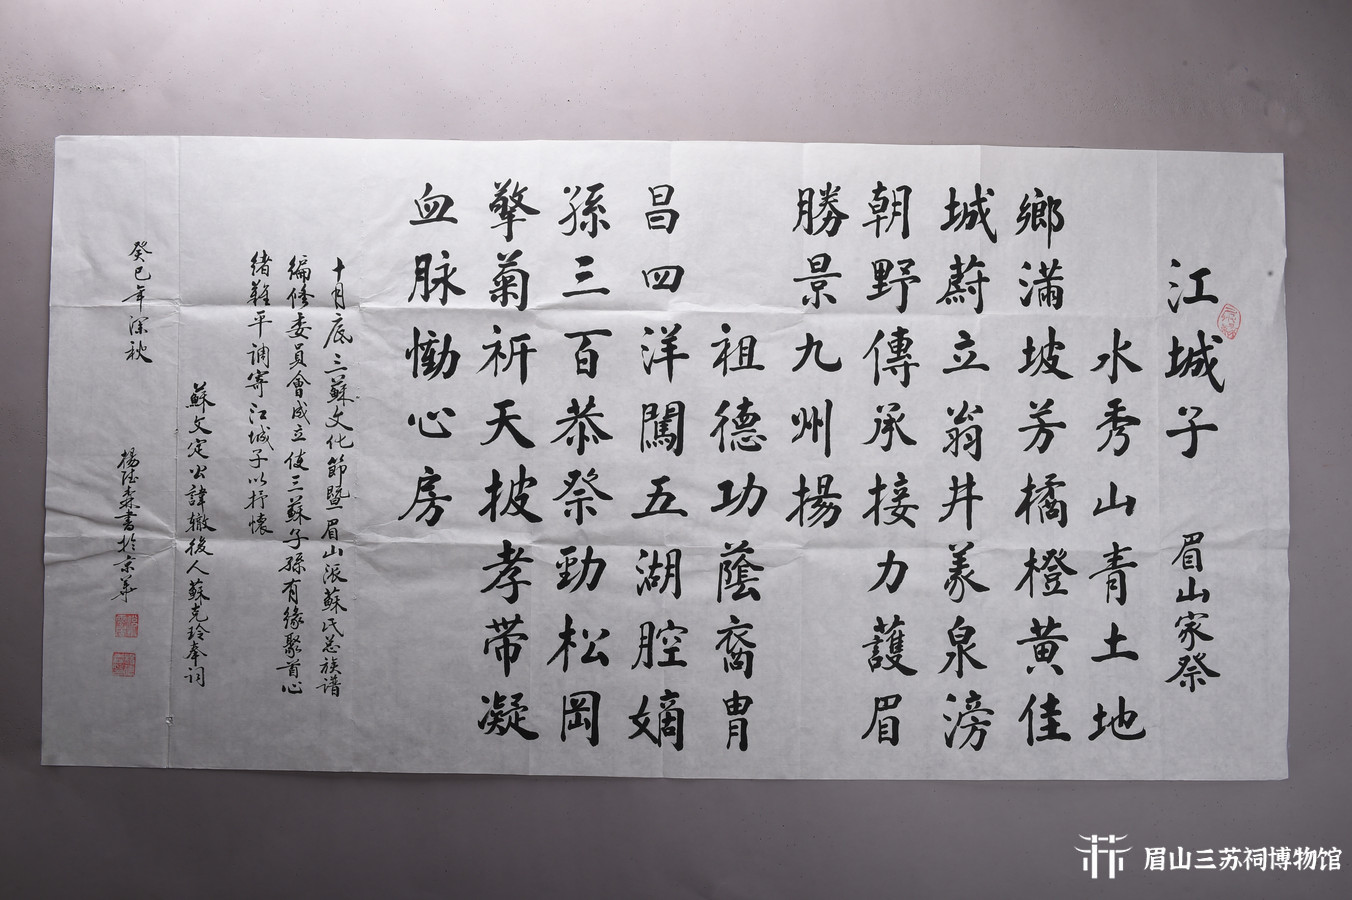 江城子 眉山家祭
水秀山青土地
鄉滿坡芳橘橙黄佳
城蔚立翁井羕泉滂
朝野傳承接力護眉
勝景九州揚
祖德功蔭裔胄
昌四洋闖五湖腔嫡
孫三百恭祭勁松岡
擎菊祈天披孝带凝
血脉慟心房
十月底三蘇文化節暨眉山派蘇氏总族譜
编修委員會成立使三蘇子孫有緣聚首心
绪難平調寄江城子以抒懷
蘇文定公諱轍後人蘇克玲奉词
癸巳年深秋
楊陸森書於京華
眉山三苏祠博物馆